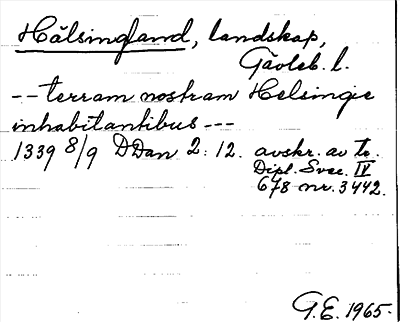 Hälsingland, landskap,
Gävleb. l.
-- terram nostram Helsingie
inhabitantibus ---
1339 8/9 DDan 2: 12. avskr. av tr.
Dipl. Svec. IV
678 nr. 3442.
G.E. 1965.